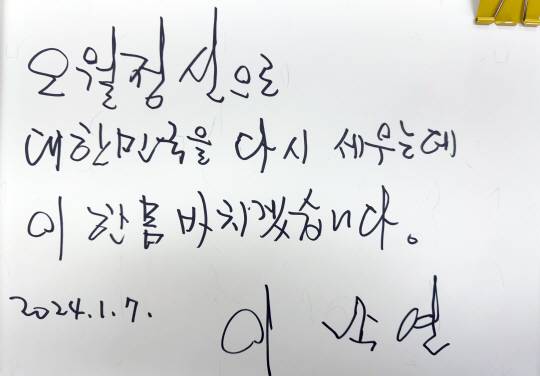 오월정신으로
대한민국을 다시 세우는데
이 한몸 바치겠습니다.
2024.1.7.
이 낙연